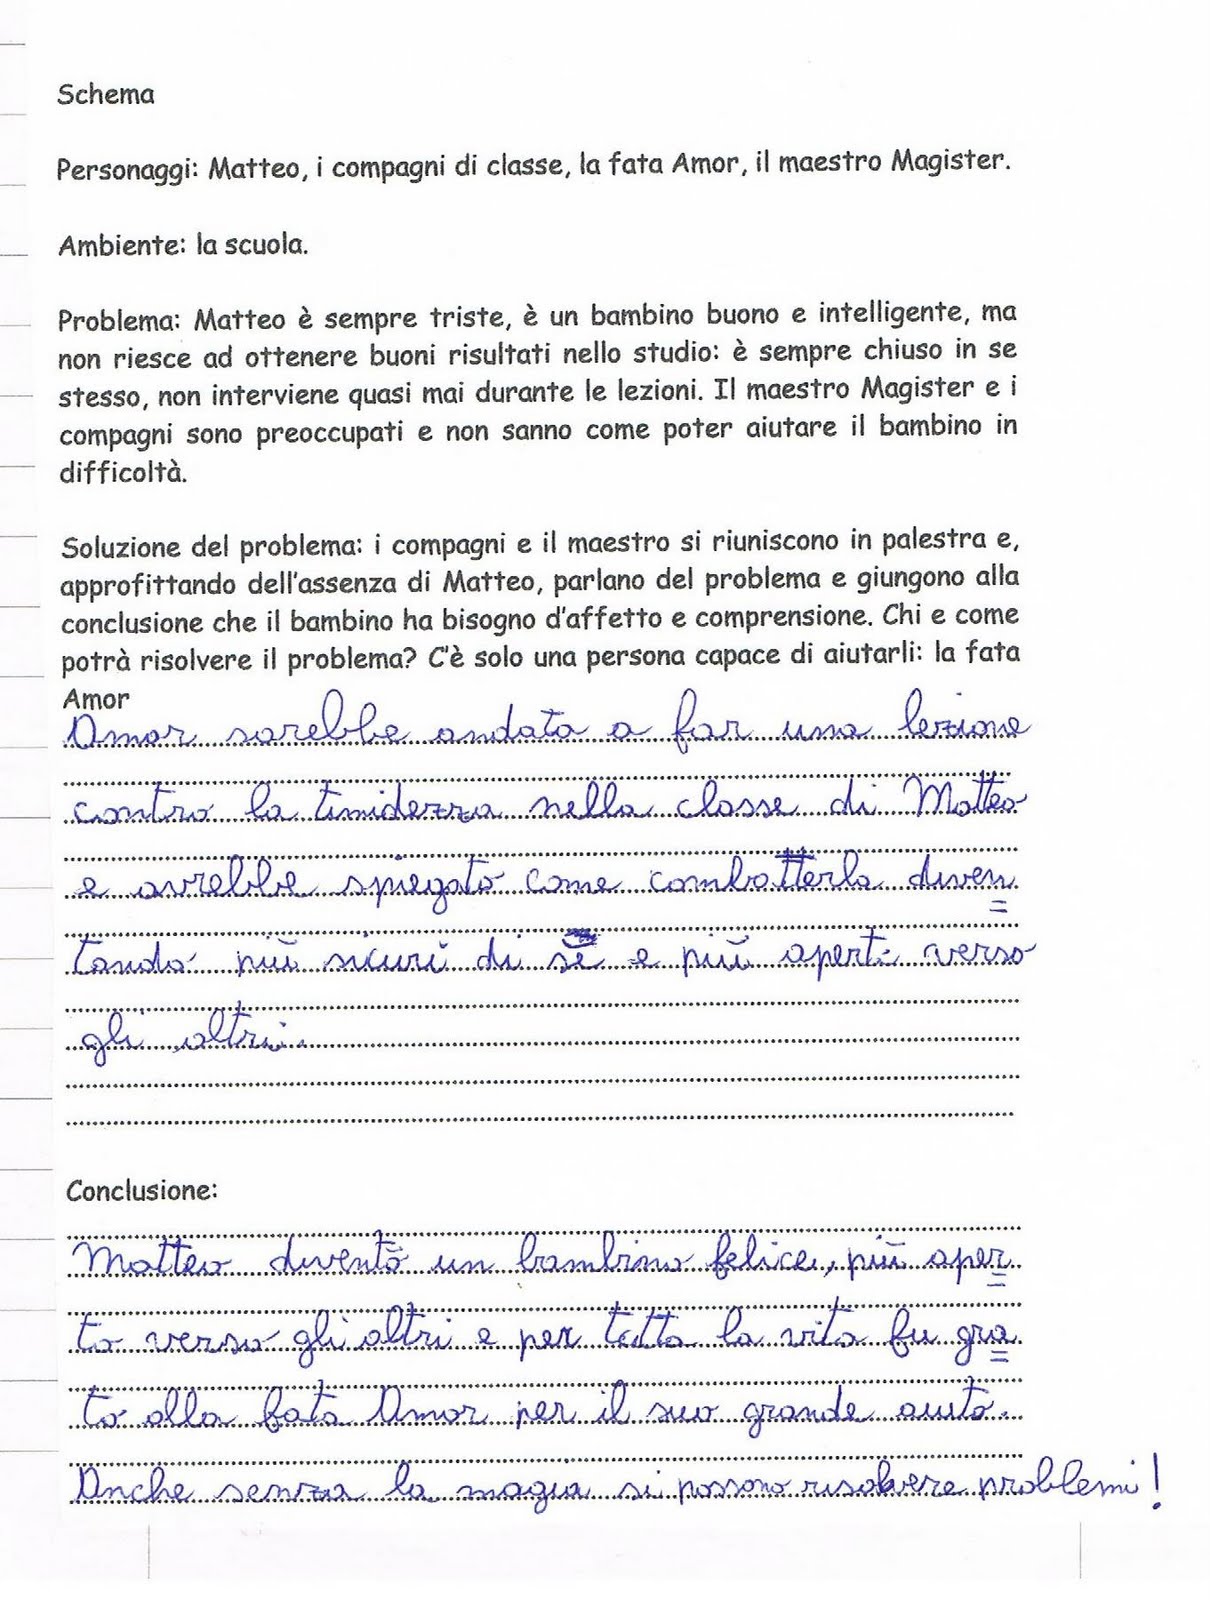 Schema
Personaggi: Matteo, i compagni di classe, la fata Amor, il maestro Magister.
Ambiente: la scuola.
Problema: Matteo è sempre triste, è un bambino buono e intelligente, ma
non riesce ad ottenere buoni risultati nello studio: è sempre chiuso in se
stesso, non interviene quasi mai durante le lezioni. Il maestro Magister e i
compagni sono preoccupati e non sanno come poter aiutare il bambino in
difficoltà.
Soluzione del problema: i compagni e il maestro si riuniscono in palestra e,
approfittando dell'assenza di Matteo, parlano del problema e giungono alla
conclusione che il bambino ha bisogno d'affetto e comprensione. Chi e come
potrà risolvere il problema? C'è solo una persona capace di aiutarli: la fata
Amor
Amor sarebbe andata a far una lezione
contro la timidezza nella classe di Matteo
e avrebbe spiegato come combatterla diven
=
tando più sicuri di sè e più aperti verso
gli altri.
Conclusione:
Matteo diventò un bambino felice, più aper
=
to verso gli altri e per tutta la vita fu gra
=
to alla fata Amor per il suo grande aiuto.
Anche senza la magia si possono risolvere problemi!